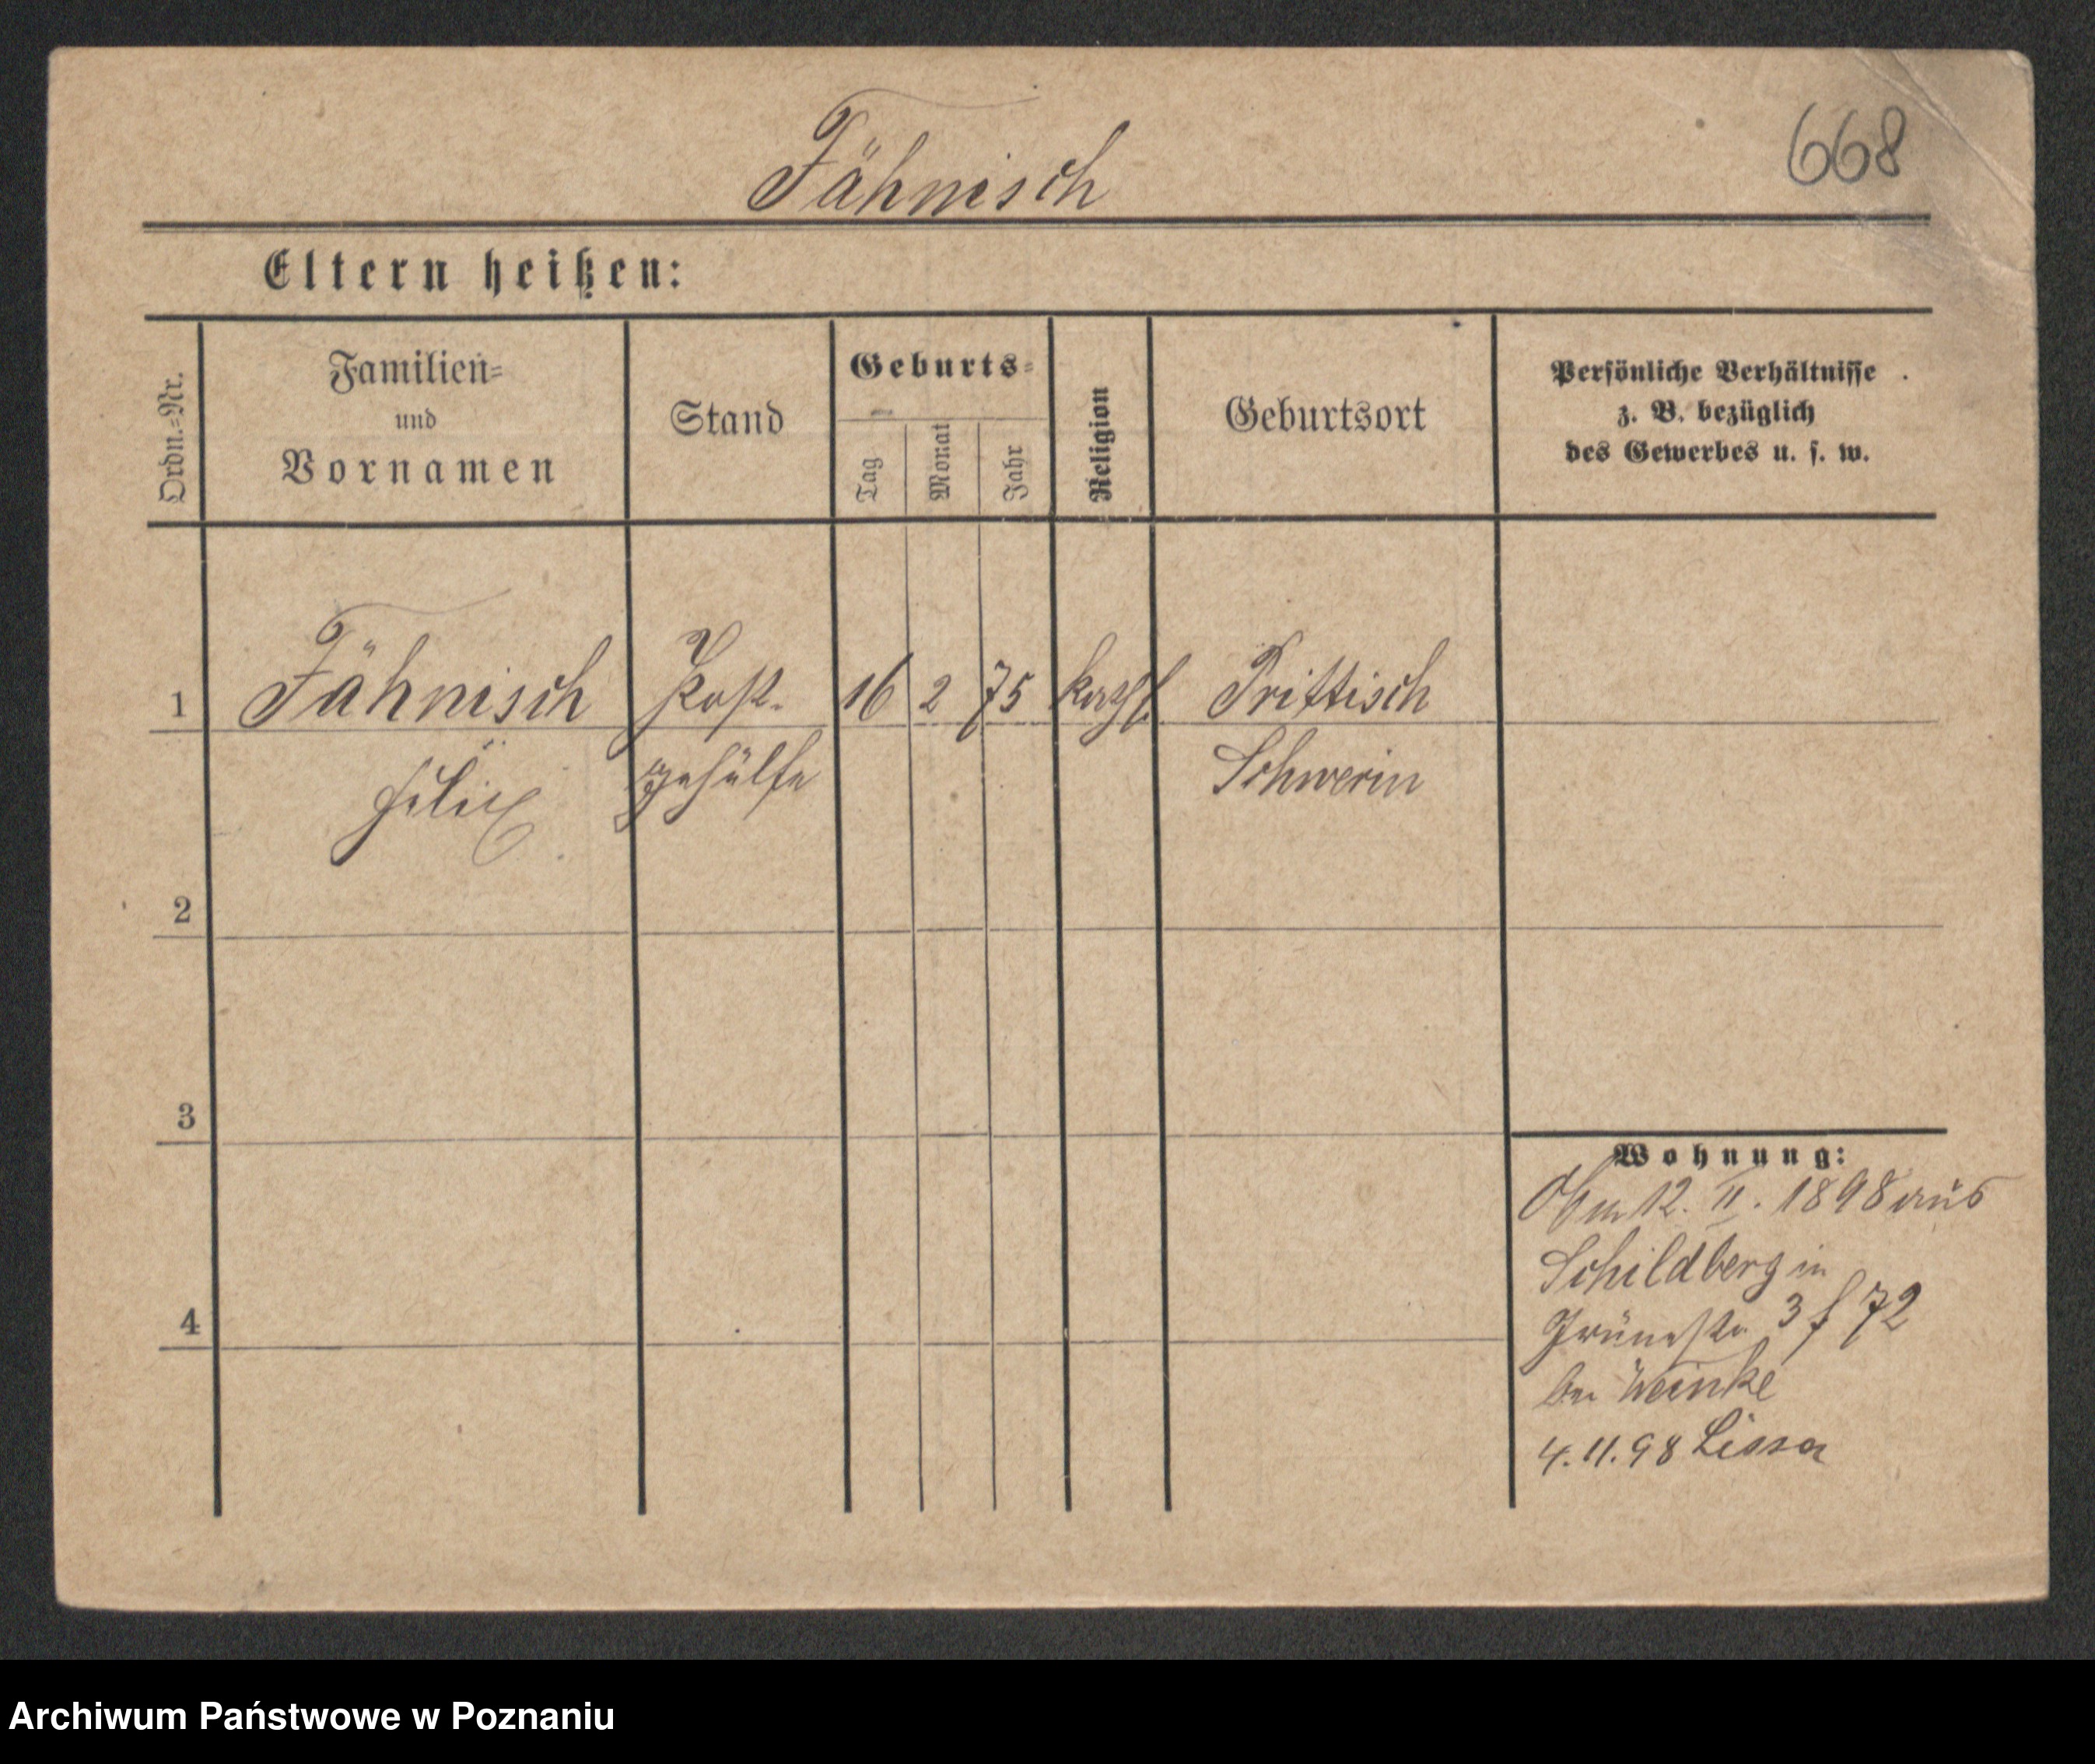 Fähnisch
668
Eltern heißen:
Ordn.=Nr.
Familien=
und
Vornamen
Stand
Geburts=
Tag
Monat
Jahr
Religion
Geburtsort
Persönliche Verhältnisse
z. B. bezüglich
des Gewerbes u. s. w.
1
Fähnisch
Post-
16
2
75
kath
Prittisch
Felix
gehülfe
Schwerin
2
3
4
Wohnung:
12. II. 1898 aus
Schildberg in
Grünestr. 3 f 72
bei Weinke
4.11.98 Lissa
Archiwum Państwowe w Poznaniu